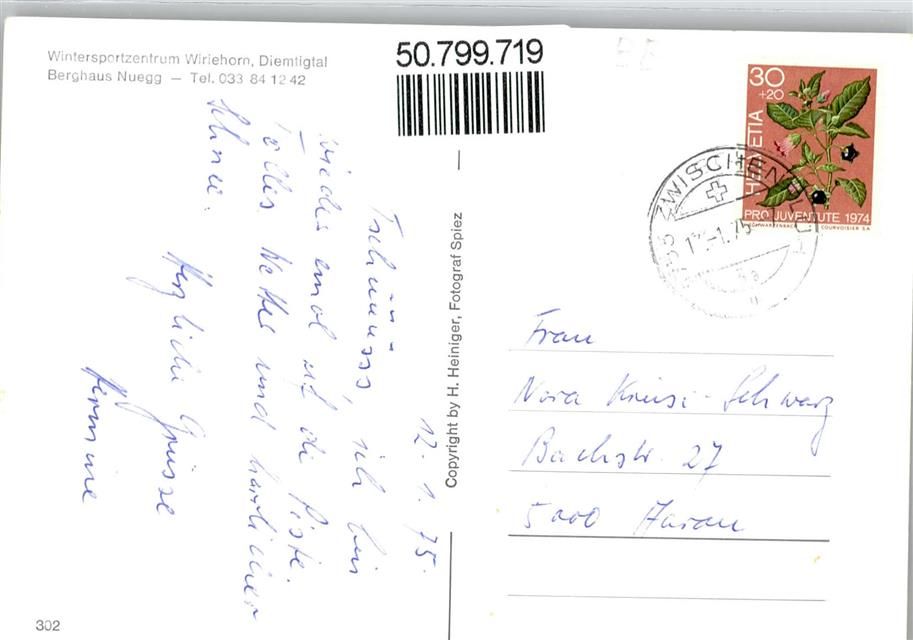 Wintersportzentrum Wiriehorn, Diemtigtal
Berghaus Nuegg — Tel. 033 84 12 42
50.799.719
30
+20
HELVETIA
PRO JUVENTUTE 1974
COURVOISIER S.A.
ZWISCHENFLÜH
-1.75
12.1.75.
ich bin
wieder einmal auf die Piste.
Tolles Wetter und herrlicher
Schnee.
Herzliche Grüsse
Hermine
Copyright by H. Heiniger, Fotograf Spiez
Frau
Nora Krüsi-Schwarz
Bachstr. 27
5000 Aarau
302